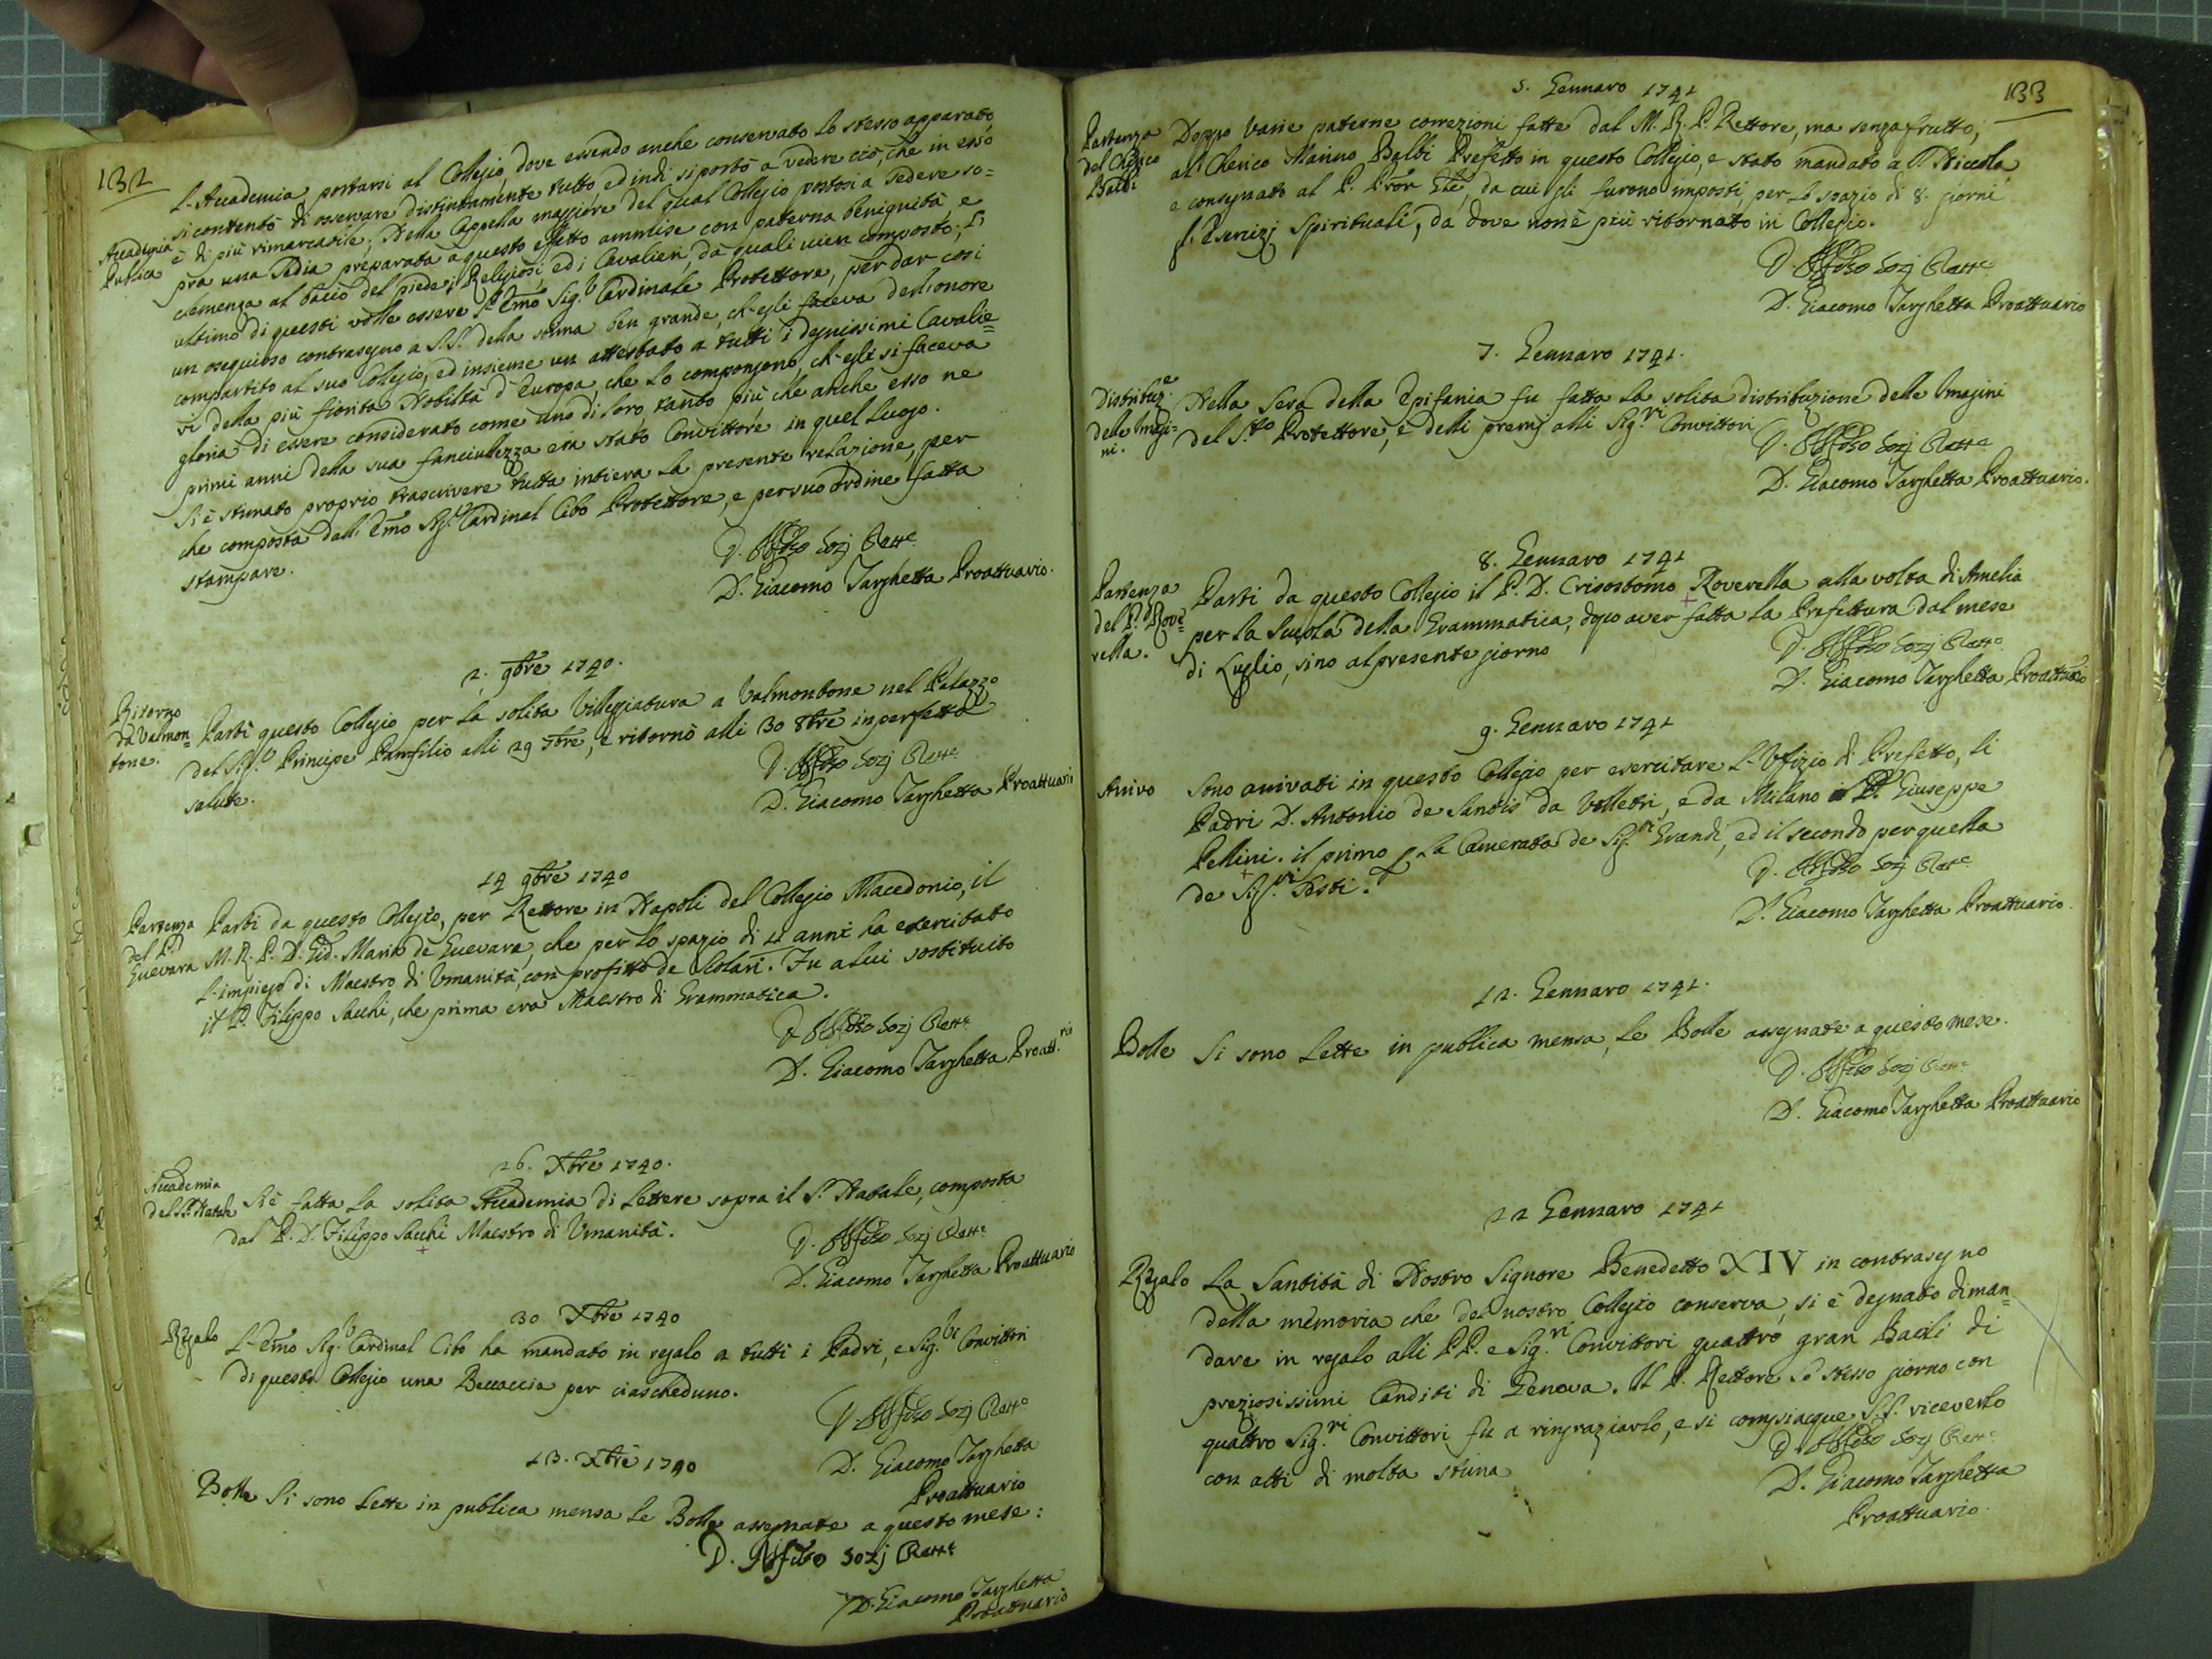 132
L'Accademia, portarsi al Collegio, dove essendo anche conservato lo stesso apparato
si contentò di osservare distintamente tutto, ed indi si portò a vedere ciò, che in esso
Accademia
Publica
è di più rimarcabile; Nella Cappella maggiore del qual Collegio postosi a sedere so=
pra una Sedia preparata a questo effetto ammise con paterna benignità e
clemenza al bacio del piede i Religiosi, ed i Cavalieri, da quali vien composto; L'
ultimo di questi volle essere l'Emo Sig.r Cardinale Protettore, per dar così
un ossequioso contrasegno a S.S. della stima ben grande, ch'egli faceva dell'onore
compartito al suo Collegio, ed insieme un attestato a tutti i degnissimi Cavalie=
ri della più fiorita Nobiltà d'Europa, che lo compongono, ch'egli si faceva
gloria di essere considerato come uno di loro, tanto più che anche esso ne
primi anni della sua fanciullezza era stato Convittore in quel luogo.
Si è stimato proprio trascrivere tutta intiera la presente relazione, per
che composta dall'Emo Sig.r Cardinal Cibo Protettore, e per suo ordine fatta
stampare.
D. Sozj Rett.e
D. Giacomo Targhetta Proattuario.
2. 9bre 1740.
Ritorno
da Valmon=
tone.
Partì questo Collegio per la solita Villeggiatura a Valmontone nel Palazzo
del Sig.r Principe Panfilio alli 29 7bre, e ritornò alli 30 8bre in perfetta
salute.
D. Sozj Rett.e
D. Giacomo Targhetta Proattuario
14 9bre 1740
Partenza
del P.
Guevara
Partì da questo Collegio, per Rettore in Napoli del Collegio Macedonio, il
M. R. P. D. Gio. Maria de Guevara, che per lo spazio di 4 anni ha esercitato
L'impiego di Maestro di Umanità, con profitto de Scolari. Fu a lui sostituito
il P. Filippo Sacchi, che prima era Maestro di Grammatica.
D. Sozj Rett.e
D. Giacomo Targhetta Proatt.rio
26. Xbre 1740.
Accademia
del S. Natale
Si è fatta la solita Accademia di Lettere sopra il S. Natale, composta
dal P. D. Filippo Sacchi Maestro di Umanità.
D. Sozj Rett.e
D. Giacomo Targhetta Proattuario
30 Xbre 1740
Regalo
L'Emo Sig.r Cardinal Cibo ha mandato in regalo a tutti i Padri, e Sig.ri Convittori
di questo Collegio una Beccaccia per ciascheduno.
D. Sozj Rett.e
D. Giacomo Targhetta
Proattuario
13. Xbre 1740
Bolle
Si sono Lette in publica mensa le Bolle assegnate a questo mese:
D. Sozj Rett.e
D. Giacomo Targhetta
Proattuario
133
5. Gennaro 1741
Partenza
del Cherico
Balbi
Doppo varie paterne correzioni fatte dal M. R. P. Rettore, ma senza frutto,
al Cherico Marino Balbi Prefetto in questo Collegio, è stato mandato a S. Niccola,
e consegnato al P. da cui gli furono imposti, per lo spazio di 8. giorni
gl'Esercizj Spirituali, da dove non è più ritornato in Collegio.
D. Sozj Rett.e
D. Giacomo Targhetta Proattuario
7. Gennaro 1741.
Distribuz.e
delle Imagi=
ni.
Nella Sera della Epifania fu fatta la solita distribuzione delle Imagini
del S.to Protettore, e delli premj alli Sig.ri Convittori
D. Sozj Rett.e
D. Giacomo Targhetta Proattuario.
8. Gennaro 1741
Partenza
del P. Rove=
rella.
Partì da questo Collegio il P. D. Crisostomo Roverella alla volta di Amelia
per la Scuola della Grammatica, dopo aver fatta la Prefettura dal mese
di Luglio, sino al presente giorno
D. Sozj Rett.e
D. Giacomo Targhetta Proattuario
9. Gennaro 1741
Arrivo
Sono arrivati in questo Collegio per esercitare L'Ofizio di Prefetto, li
Padri D. Antonio de Sanctis da Velletri, e da Milano il P. Giuseppe
Pellini. il primo p la Camerata de Sig.ri Grandi, ed il secondo per quella
de Sig.ri
D. Sozj Rett.e
D. Giacomo Targhetta Proattuario.
12. Gennaro 1741.
Bolle
Si sono Lette in publica mensa, le Bolle assegnate a questo mese.
D. Sozj Rett.e
D. Giacomo Targhetta Proattuario
22 Gennaro 1741
Regalo
La Santità di Nostro Signore Benedetto XIV in contrasegno
della memoria che del nostro Collegio conserva, si è degnato di man=
dare in regalo alli PP. e Sig.ri Convittori quattro gran Bacili di
preziosissimi Canditi di Genova. Il P. Rettore lo stesso giorno con
quattro Sig.ri Convittori fu a ringraziarlo, e si compiacque S.S. riceverlo
con atti di molta stima
D. Sozj Rett.e
D. Giacomo Targhetta
Proattuario.